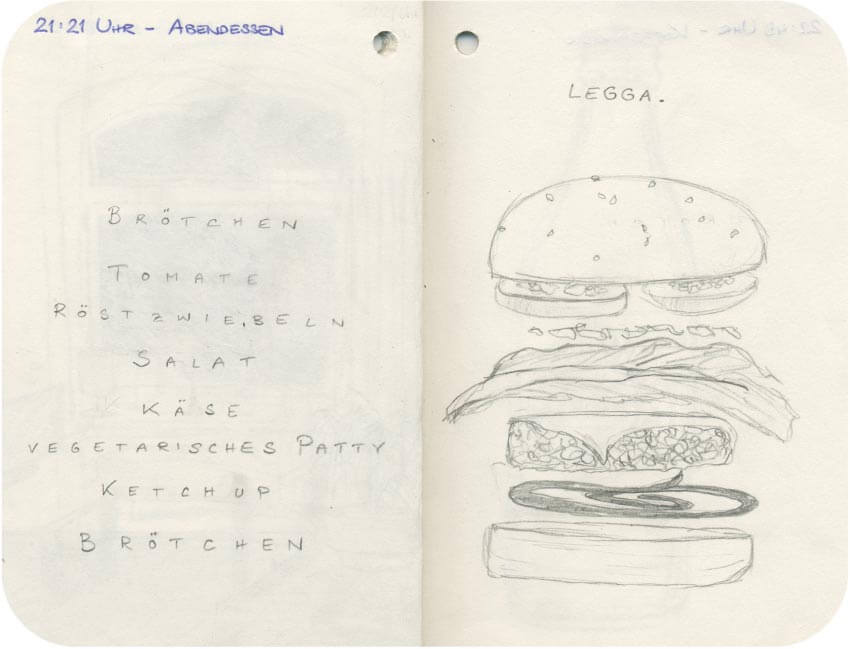 21:21 Uhr - Abendessen
Brötchen
Tomate
Röstzwiebeln
Salat
Käse
vegetarisches Patty
Ketchup
Brötchen
Legga.